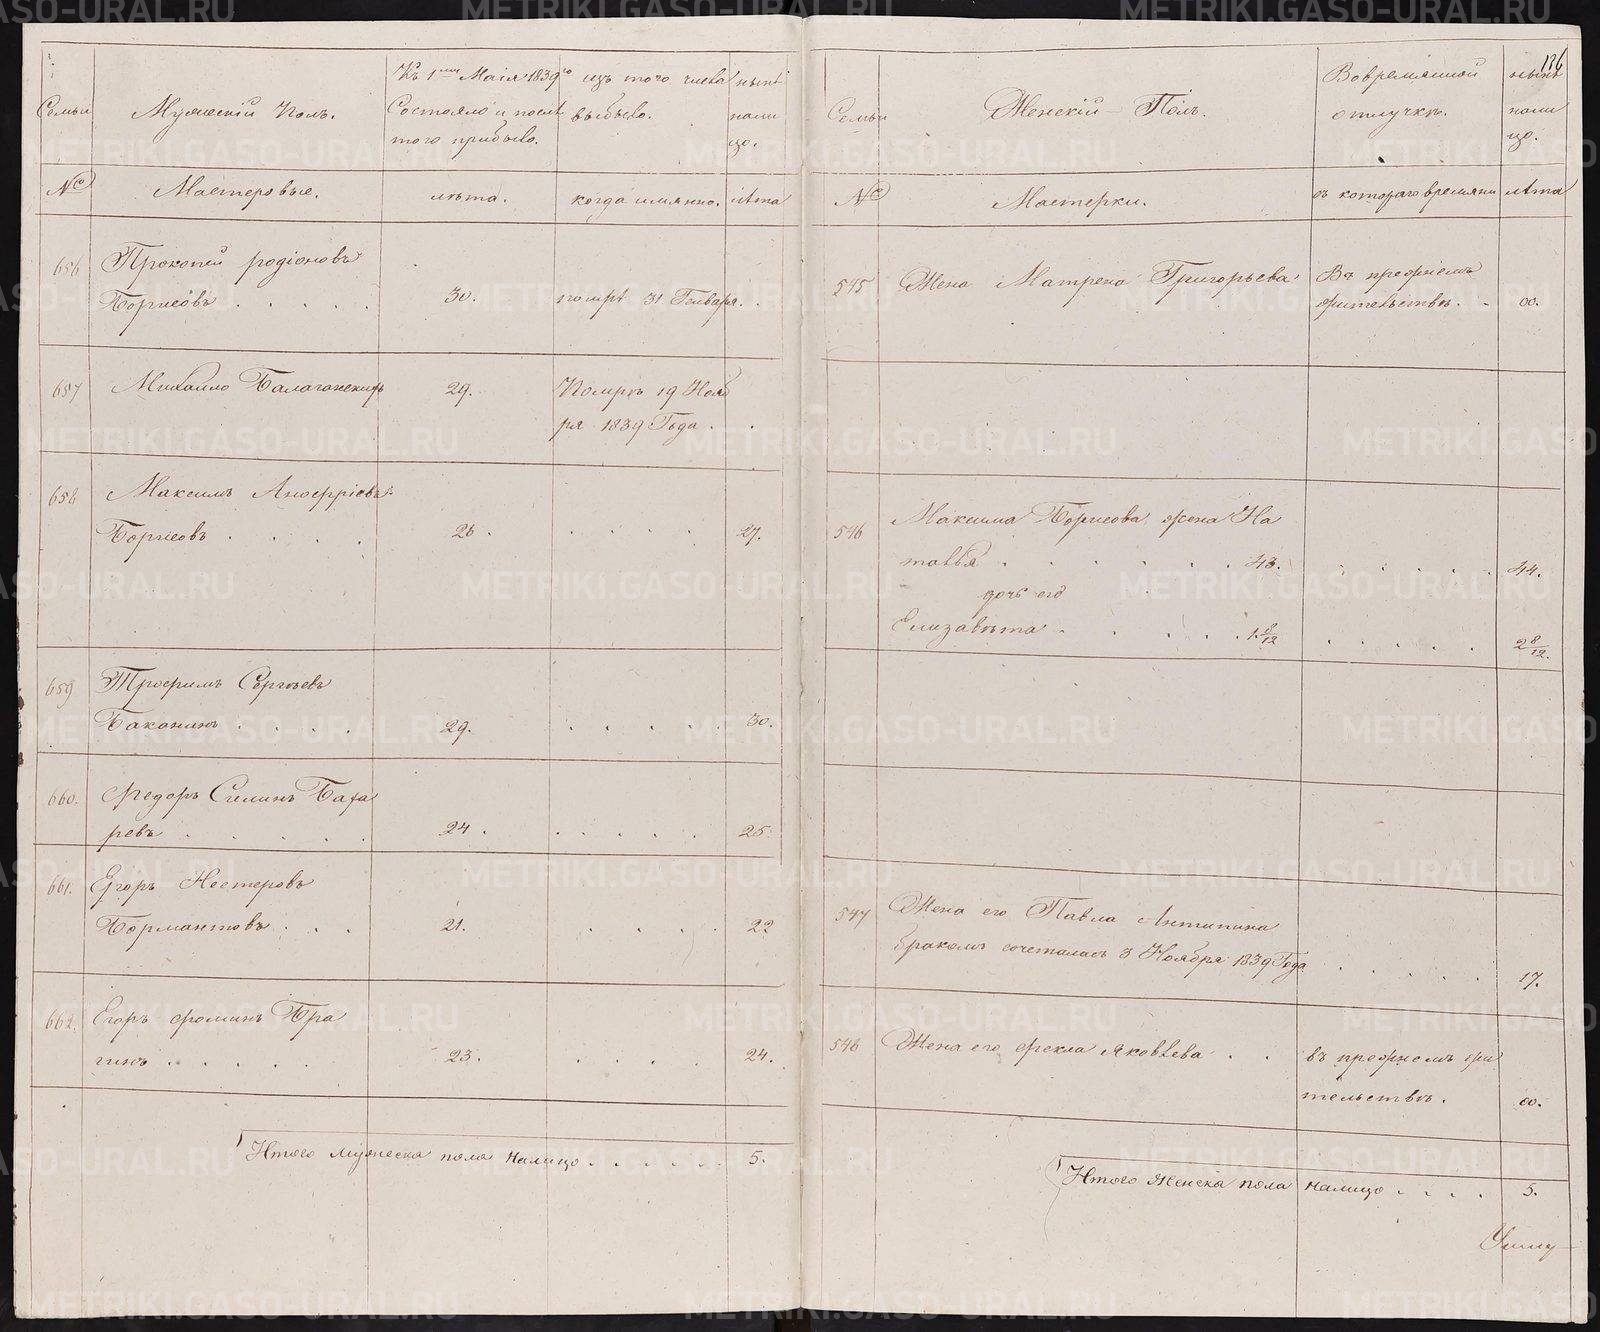 126
Семьи
Мужескiй Полъ.
Къ 1му Маiя 1839го
Состояло и послѣ
того прибыло.
изъ того числа
выбыло.
нынѣ
нали
цо.
№
Мастеровые.
лѣта.
когда имянно.
лѣта
656
Прокопей родiоновъ
Борисовъ . . . . .
30.
помрѣ 31 Генваря. .
657
Михайло Балаганскихъ
29.
Помръ 19 Нояб
ря 1839 Года . .
658
Максимъ
Борисовъ . . . .
26 .
. . . . .
27.
659
Трофимъ Сергѣевъ
Баканинъ . . . .
29.
. . . . .
30.
660.
Федоръ Силинъ
ревъ . . . . . .
24 .
. . . . .
25.
661.
Егоръ Нестеровъ
Бормантовъ . . .
21.
. . . .
22
662.
Егоръ фоминъ Бра
гинъ . . . . .
23.
. . . .
24.
Итого мужеска пола налицо . . . . . .
5.
Семьи
Женскiй Полъ.
Вовремянной
отлучкѣ.
нынѣ
нали
цо.
№
Мастерки.
съ котораго времяни
лѣта
545
Жена Матрена Григорьева
Въ прежнемъ
жительствѣ. .
00.
546
Максима Борисова жена На
талья . . . . . . . 43.
. . . . .
44.
дочь его
Елизавѣта . . . . . 1 8/12
. . . . .
2 8/12.
547
Жена его Павла Антипина
бракомъ сочеталась 3 Ноября 1839 Года
. . . . .
17.
548
Жена его фекла Яковлева . .
въ прежнемъ жи
тельствѣ.
00.
Итого женска пола налицо . . . .
5.
METRIKI.GASO-URAL.RU